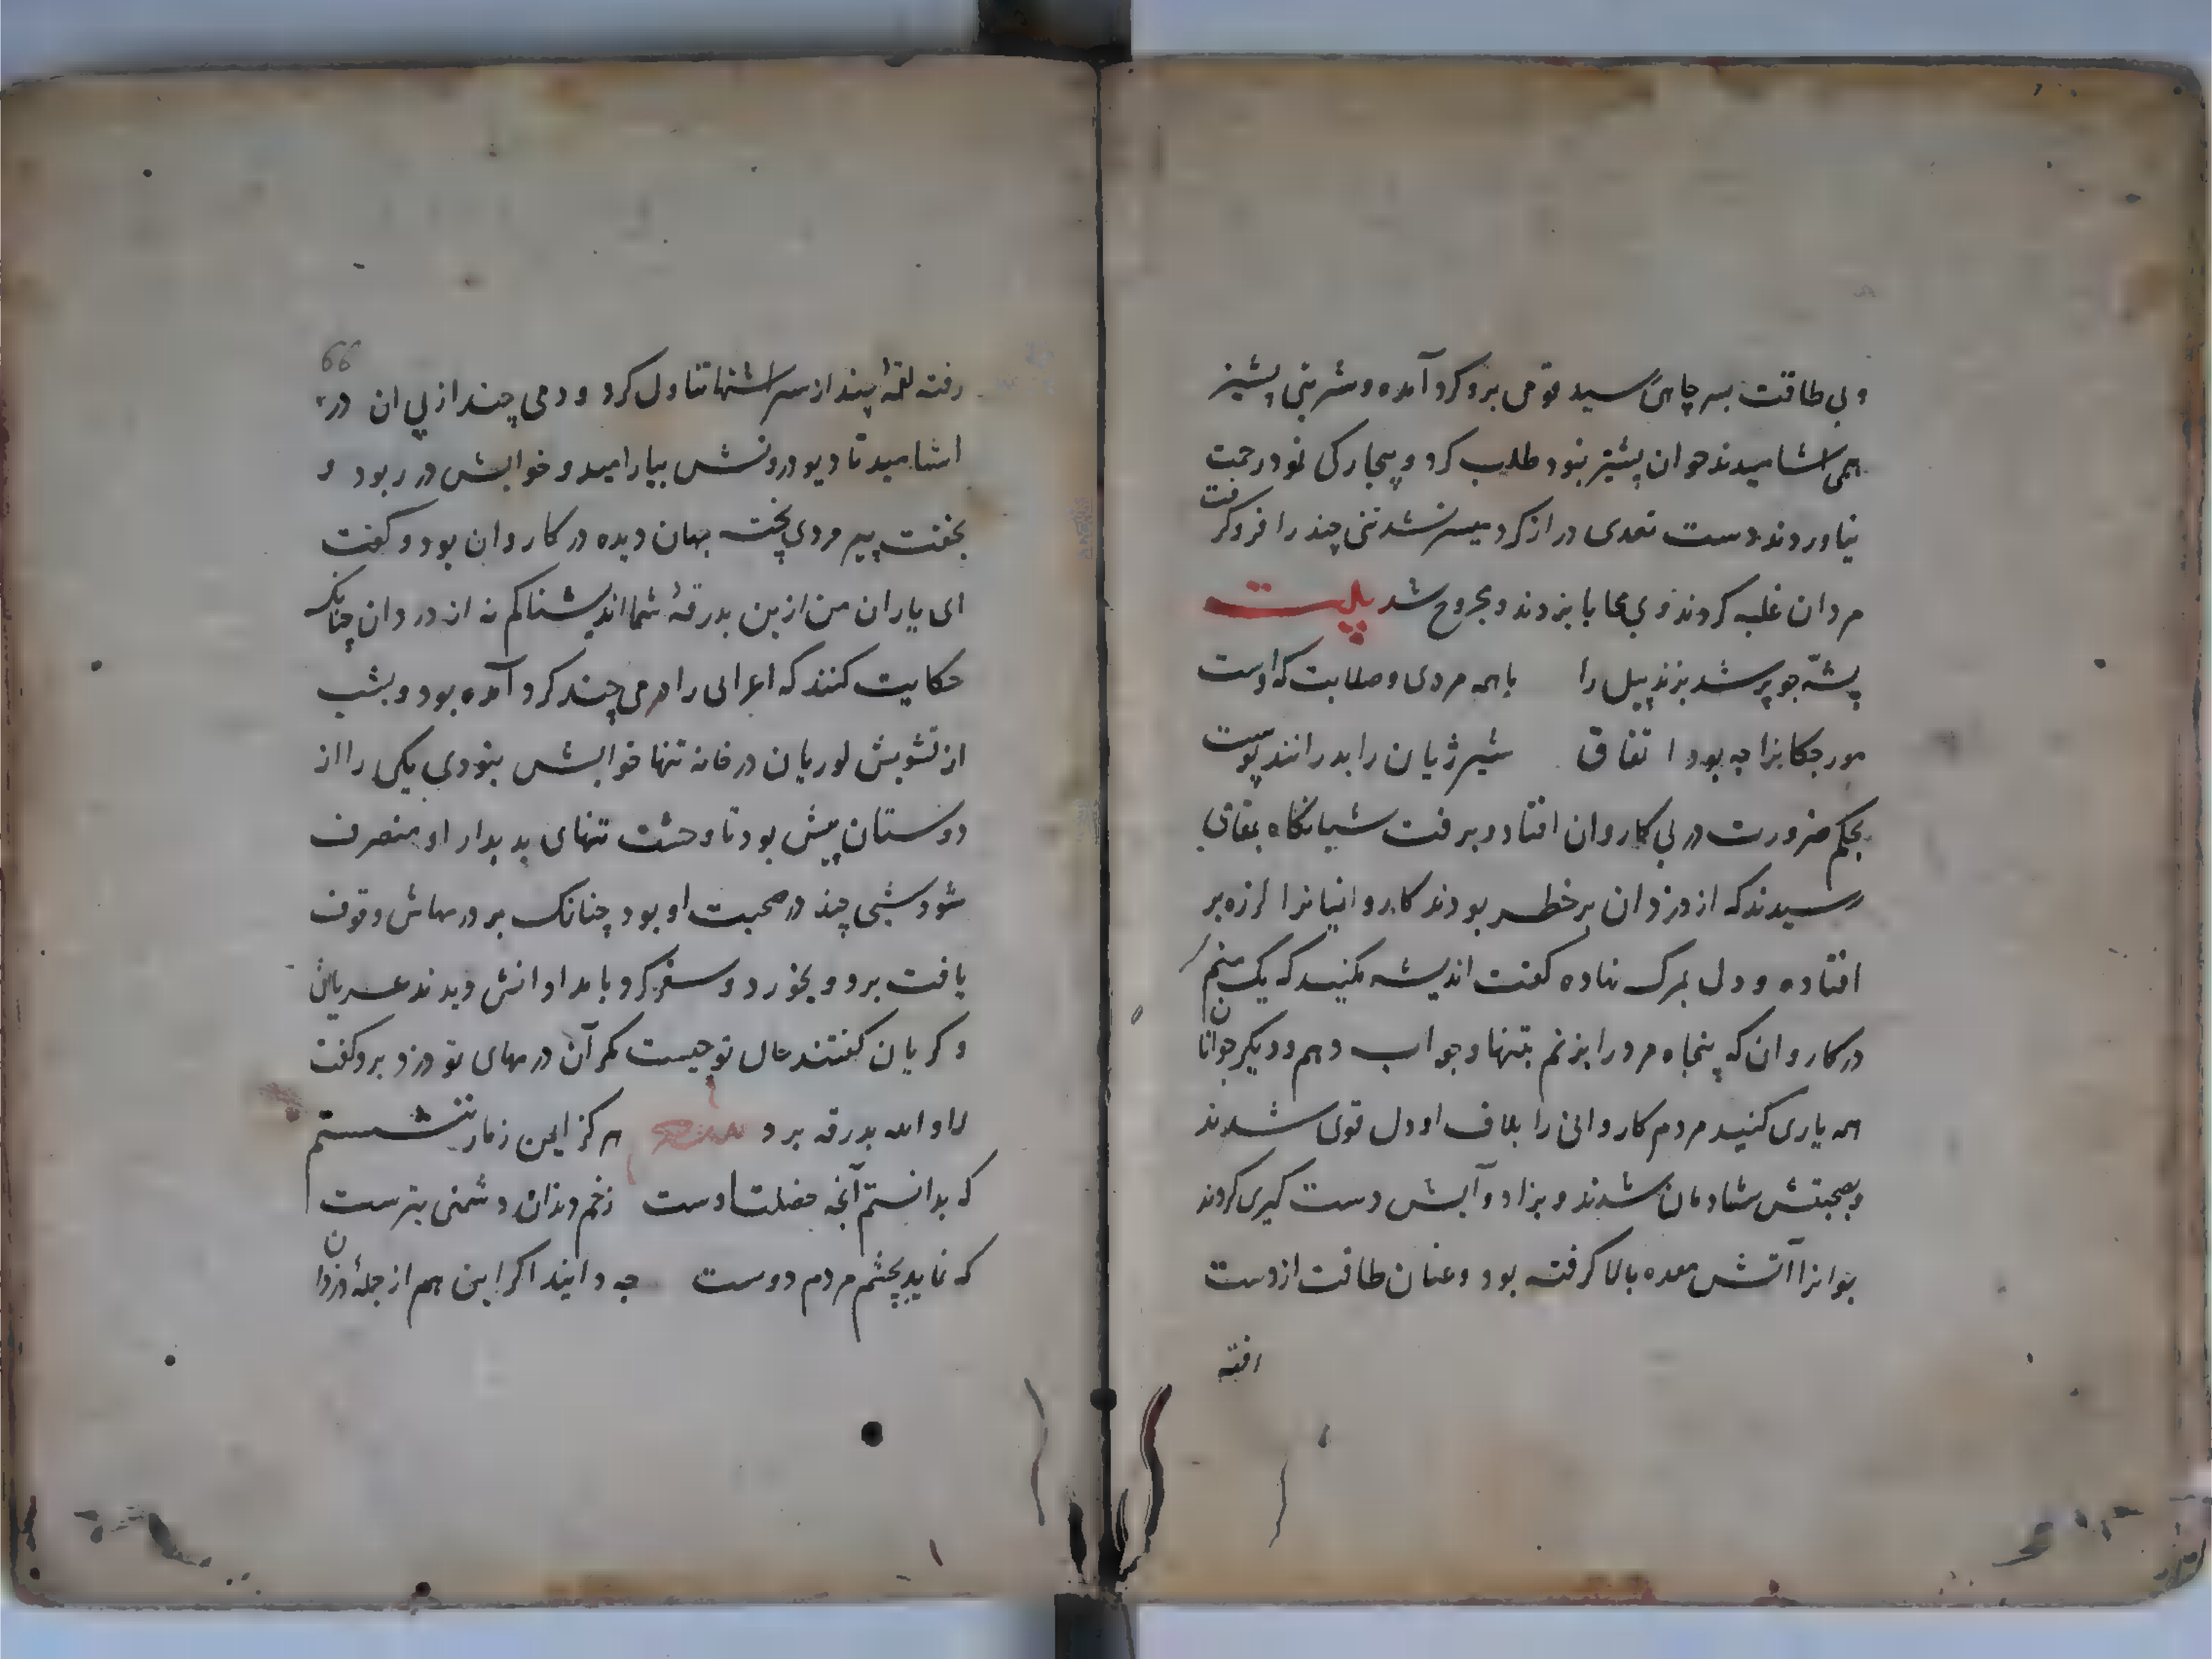 و بی طاقت بسر چاهی رسید قومی برو کرد آمده و شربتی پشیز
همی اشامیدند جوان پشیز نبود طلب کرد و بیچارکی نمود رحمت
نیاوردند دست تعدی دراز کرد میسر نشد تنی چند را فرو کرفت
مردان غلبه کردند و بی محابا بزدند و مجروح شد بیت
پشّه جو پر شد بزند پیل را باهمه مردی و صلابت که اوست
مورجکانرا چه بود اتفاق شیر ژیان را بدرانند پوست
بحکم ضرورت در پی کاروان افتاد و برفت شبانکاه بمقامی
رسیدند که از دزدان پر خطر بودند کاروانیانرا لرزه بر
افتاده و دل بمرک نهاده کفت اندیشه مکنید که یک منم
در کاروان که پنجاه مرد را بزنم بتنها و جواب دهم و دیکر جوانان
همه یاری کنید مردم کاروانی را بلاف او دل قوی شدند
و بصحبتش شادمان شدند و بزاد و آبش دست کیری کردند
جوانرا آتش معده بالا کرفته بود و عنان طاقت از دست
رفته
66
رفته لقمهٔ چند از سر اشتها تناول کرد و دمی چند از پی ان در
اشامید تا دیو درونش بیارامید و خوابش در ربود و
بخفت پیر مردی پخته جهان دیده در کاروان بود و کفت
ای یاران من ازین بدرقهٔ شما اندیشناکم نه از دردان چنانکه
حکایت کنند که اعرابی را درمی چند کرد آمده بود و بشب
از تشویش لوریان در خانه تنها خوابش نبودی یکی را از
دوستان پیش بود تا وحشت تنهای بدیدار او منصرف
شود شبی چند در صحبت او بود چنانک بر درمهاش وقوف
یافت برد و بخورد و سفر کرد بامدادانش دیدند عریان
و کریان کفتند حال تو چیست مکر آن درمهای تو دزد برد کفت
لا والله بدرقه برد هرکز ایمن زمار ننشستم
که بدانستم آنچه خصلت اوست زخم دندان دشمنی بترست
که نماید بچشم مردم دوست چه دانید اکر این هم از جملهٔ دزدان